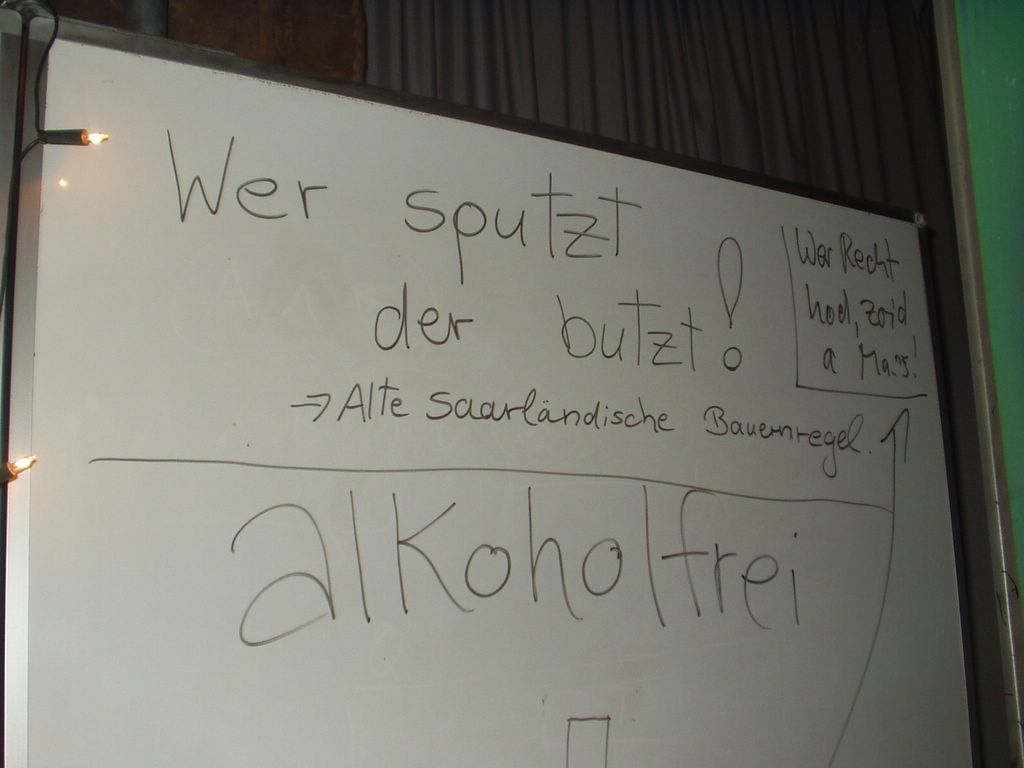 Wer sputzt
der butzt!
→ Alte saarländische Bauernregel.
Wer Recht
hod, zoid
a Mass!
alkoholfrei